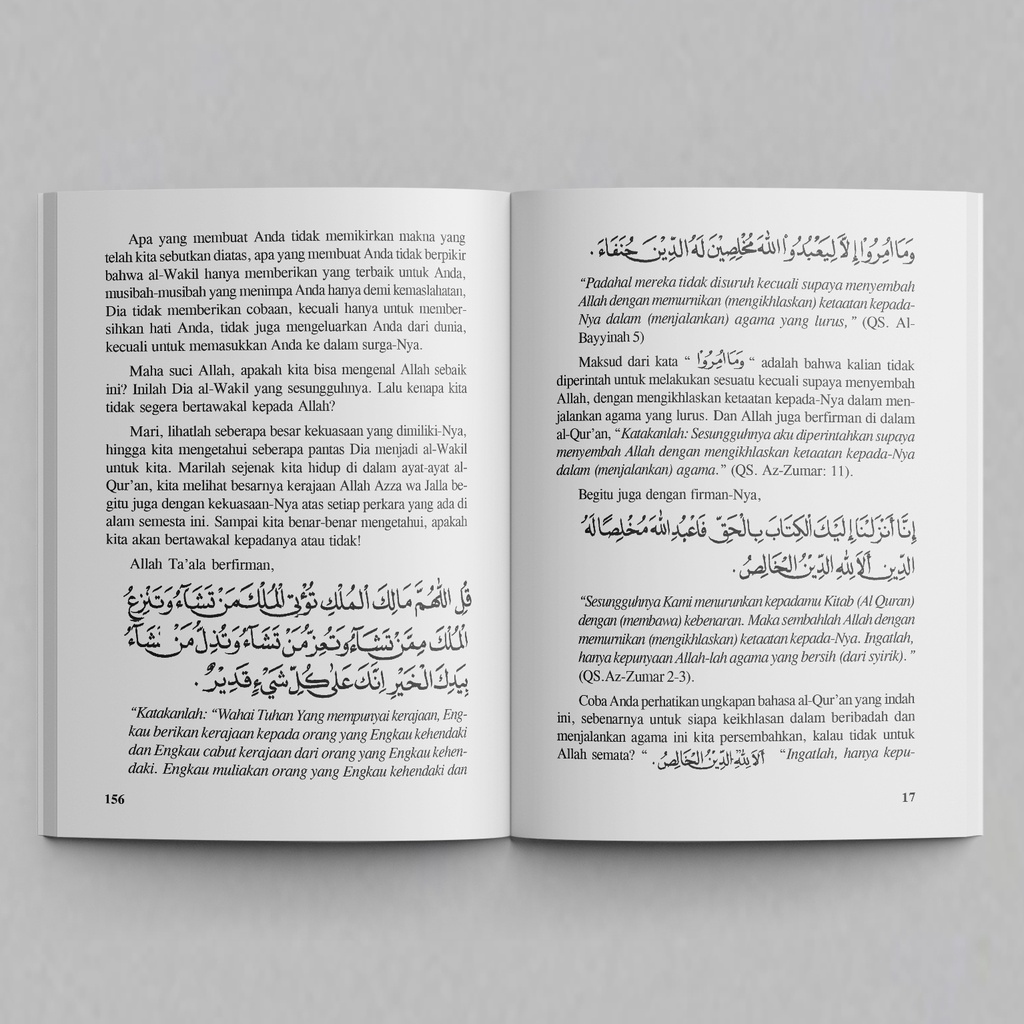 Apa yang membuat Anda tidak memikirkan makna yang
telah kita sebutkan diatas, apa yang membuat Anda tidak berpikir
bahwa al-Wakil hanya memberikan yang terbaik untuk Anda,
musibah-musibah yang menimpa Anda hanya demi kemaslahatan,
Dia tidak memberikan cobaan, kecuali hanya untuk member-
sihkan hati Anda, tidak juga mengeluarkan Anda dari dunia,
kecuali untuk memasukkan Anda ke dalam surga-Nya.
Maha suci Allah, apakah kita bisa mengenal Allah sebaik
ini? Inilah Dia al-Wakil yang sesungguhnya. Lalu kenapa kita
tidak segera bertawakal kepada Allah?
Mari, lihatlah seberapa besar kekuasaan yang dimiliki-Nya,
hingga kita mengetahui seberapa pantas Dia menjadi al-Wakil
untuk kita. Marilah sejenak kita hidup di dalam ayat-ayat al-
Qur'an, kita melihat besarnya kerajaan Allah Azza wa Jalla be-
gitu juga dengan kekuasaan-Nya atas setiap perkara yang ada di
alam semesta ini. Sampai kita benar-benar mengetahui, apakah
kita akan bertawakal kepadanya atau tidak!
Allah Ta'ala berfirman,
قُلِ اللَّهُمَّ مَالِكَ الْمُلْكِ تُؤْتِي الْمُلْكَ مَنْ تَشَاءُ وَتَنْزِعُ
الْمُلْكَ مِمَّنْ تَشَاءُ وَتُعِزُّ مَنْ تَشَاءُ وَتُذِلُّ مَنْ تَشَاءُ
بِيَدِكَ الْخَيْرُ إِنَّكَ عَلَىٰ كُلِّ شَيْءٍ قَدِيرٌ .
"Katakanlah: "Wahai Tuhan Yang mempunyai kerajaan, Eng-
kau berikan kerajaan kepada orang yang Engkau kehendaki
dan Engkau cabut kerajaan dari orang yang Engkau kehen-
daki. Engkau muliakan orang yang Engkau kehendaki dan
156
وَمَا أُمِرُوا إِلَّا لِيَعْبُدُوا اللَّهَ مُخْلِصِينَ لَهُ الدِّينَ حُنَفَاءَ .
"Padahal mereka tidak disuruh kecuali supaya menyembah
Allah dengan memurnikan (mengikhlaskan) ketaatan kepada-
Nya dalam (menjalankan) agama yang lurus," (QS. Al-
Bayyinah 5)
Maksud dari kata " وَمَا أُمِرُوا " adalah bahwa kalian tidak
diperintah untuk melakukan sesuatu kecuali supaya menyembah
Allah, dengan mengikhlaskan ketaatan kepada-Nya dalam men-
jalankan agama yang lurus. Dan Allah juga berfirman di dalam
al-Qur'an, "Katakanlah: Sesungguhnya aku diperintahkan supaya
menyembah Allah dengan mengikhlaskan ketaatan kepada-Nya
dalam (menjalankan) agama." (QS. Az-Zumar: 11).
Begitu juga dengan firman-Nya,
إِنَّا أَنْزَلْنَا إِلَيْكَ الْكِتَابَ بِالْحَقِّ فَاعْبُدِ اللَّهَ مُخْلِصًا لَهُ
الدِّينَ أَلَا لِلَّهِ الدِّينُ الْخَالِصُ .
"Sesungguhnya Kami menurunkan kepadamu Kitab (Al Quran)
dengan (membawa) kebenaran. Maka sembahlah Allah dengan
memurnikan (mengikhlaskan) ketaatan kepada-Nya. Ingatlah,
hanya kepunyaan Allah-lah agama yang bersih (dari syirik)."
(QS.Az-Zumar 2-3).
Coba Anda perhatikan ungkapan bahasa al-Qur'an yang indah
ini, sebenarnya untuk siapa keikhlasan dalam beribadah dan
menjalankan agama ini kita persembahkan, kalau tidak untuk
Allah semata? " أَلَا لِلَّهِ الدِّينُ الْخَالِصُ . "Ingatlah, hanya kepu-
17